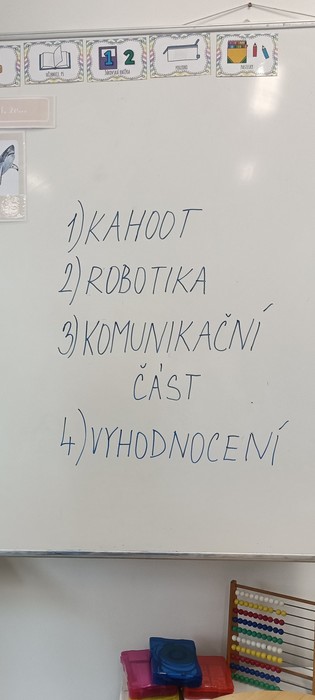 1 2
1) KAHOOT
2) ROBOTIKA
3) KOMUNIKAČNÍ
ČÁST
4) VYHODNOCENÍ